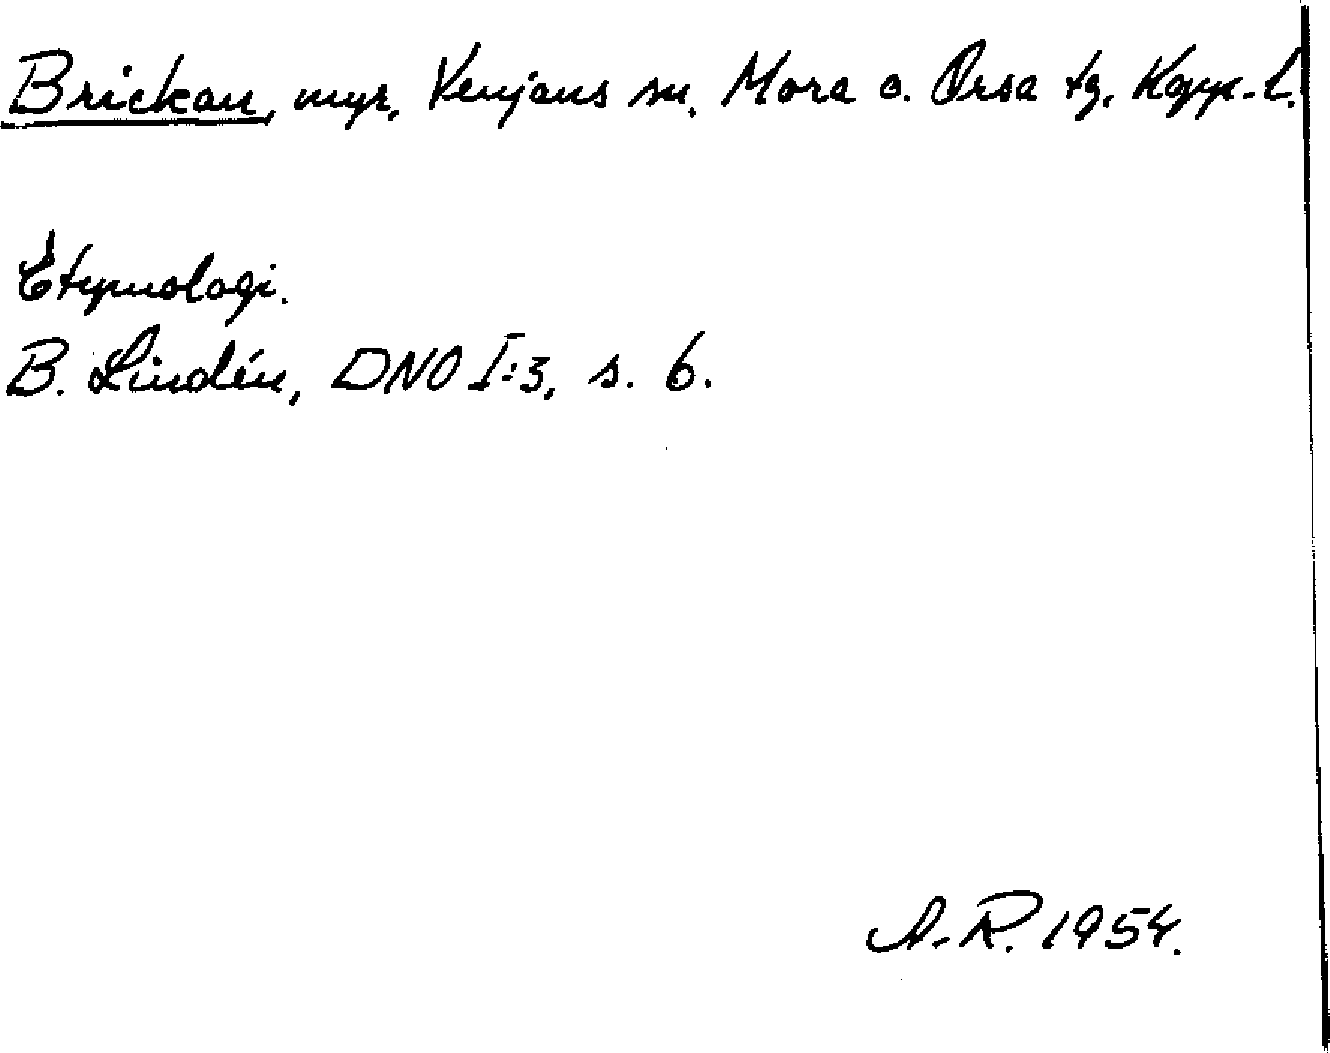 Brickan, myr, Venjans sn. Mora o. Orsa tg, Kopp. l.
Etymologi.
B. Lindén, DNO I:3, s. 6.
A.R. 1954.